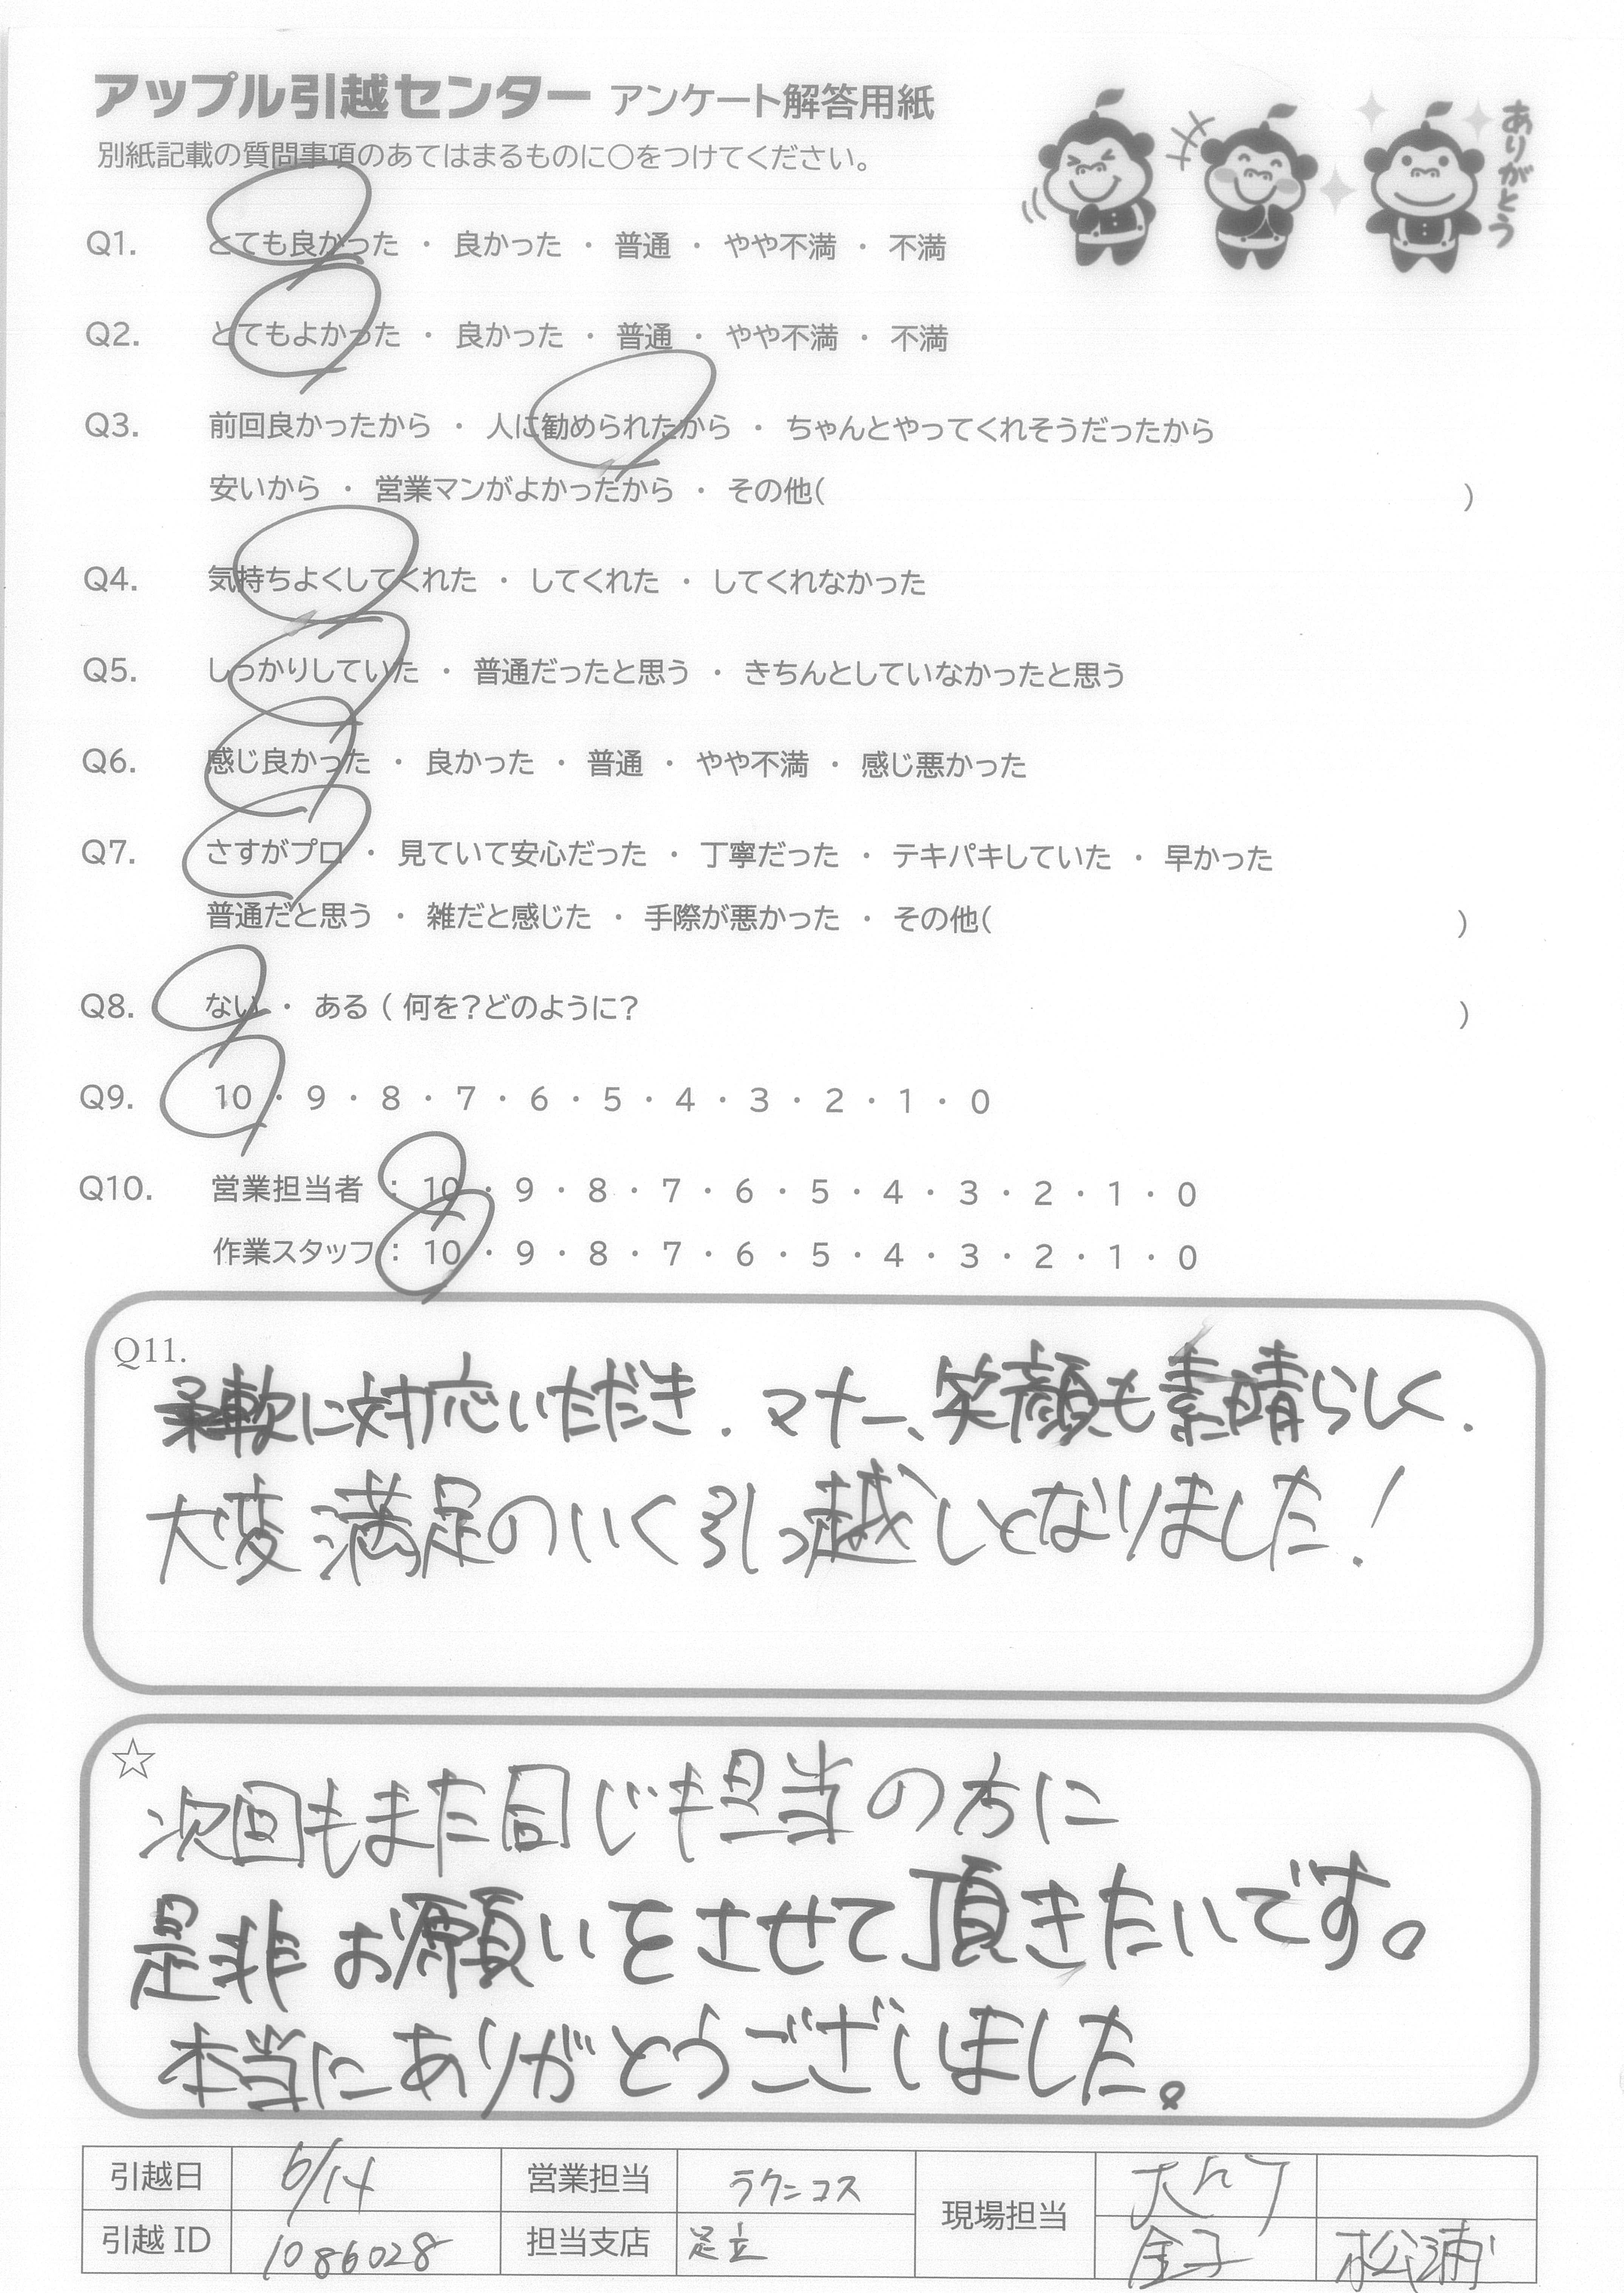 アップル引越センター アンケート解答用紙
別紙記載の質問事項のあてはまるものに○をつけてください。
ありがとう
Q1. とても良かった ・ 良かった ・ 普通 ・ やや不満 ・ 不満
Q2. とてもよかった ・ 良かった ・ 普通 ・ やや不満 ・ 不満
Q3. 前回良かったから ・ 人に勧められたから ・ ちゃんとやってくれそうだったから
安いから ・ 営業マンがよかったから ・ その他( )
Q4. 気持ちよくしてくれた ・ してくれた ・ してくれなかった
Q5. しっかりしていた ・ 普通だったと思う ・ きちんとしていなかったと思う
Q6. 感じ良かった ・ 良かった ・ 普通 ・ やや不満 ・ 感じ悪かった
Q7. さすがプロ ・ 見ていて安心だった ・ 丁寧だった ・ テキパキしていた ・ 早かった
普通だと思う ・ 雑だと感じた ・ 手際が悪かった ・ その他( )
Q8. ない ・ ある ( 何を?どのように? )
Q9. 10 ・ 9 ・ 8 ・ 7 ・ 6 ・ 5 ・ 4 ・ 3 ・ 2 ・ 1 ・ 0
Q10. 営業担当者 : 10 ・ 9 ・ 8 ・ 7 ・ 6 ・ 5 ・ 4 ・ 3 ・ 2 ・ 1 ・ 0
作業スタッフ : 10 ・ 9 ・ 8 ・ 7 ・ 6 ・ 5 ・ 4 ・ 3 ・ 2 ・ 1 ・ 0
Q11.
柔軟に対応いただき、マナー、笑顔も素晴らしく、
大変満足のいく引っ越しとなりました!
☆
次回もまた同じも担当の方に
是非お願いをさせて頂きたいです。
本当にありがとうございました。
引越日 6/14 営業担当 ラクニコス 現場担当
引越 ID 1086028 担当支店 足立 金子 松浦